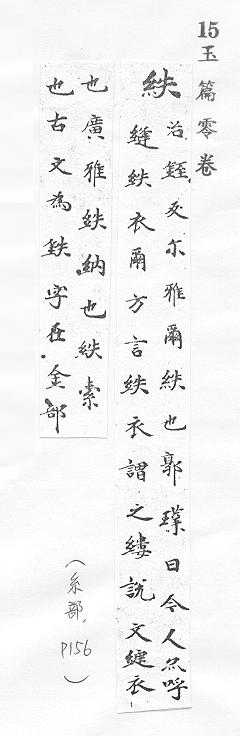 15玉篇零卷
紩
治銍反尒雅爾紩也郭璞曰今人亦呼
縫紩衣爾方言紩衣謂之縷說文縫衣
也廣雅紩納也紩索
也古文為鉄字在金部
(糸部, P156)